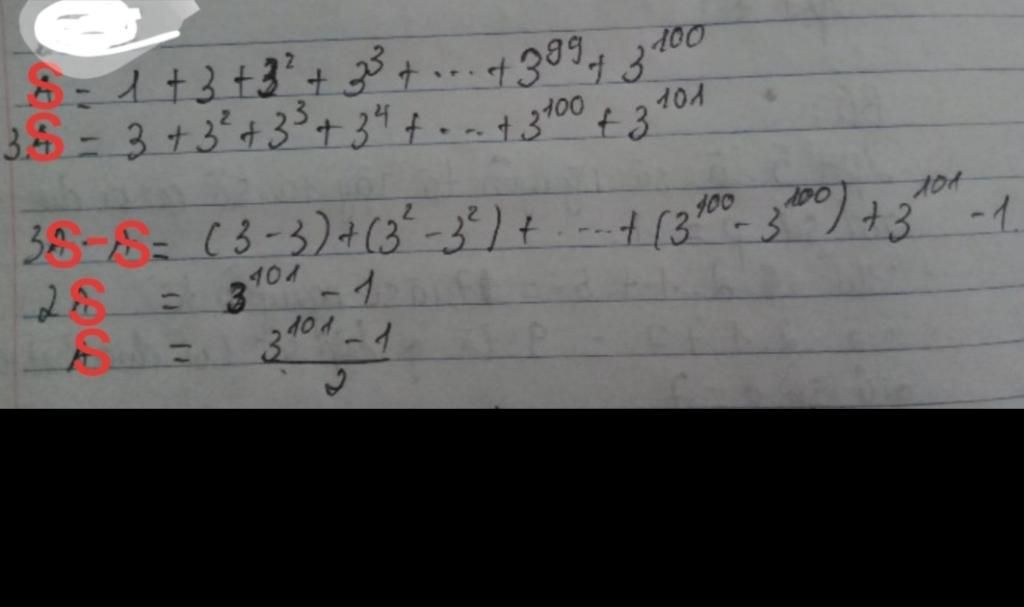 S = 1 + 3 + 3² + 3³ + ... + 3⁹⁹ + 3¹⁰⁰
3S = 3 + 3² + 3³ + 3⁴ + ... + 3¹⁰⁰ + 3¹⁰¹
3S - S = (3 - 3) + (3² - 3²) + ... + (3¹⁰⁰ - 3¹⁰⁰) + 3¹⁰¹ - 1.
2S = 3¹⁰¹ - 1
S = (3¹⁰¹ - 1)/2